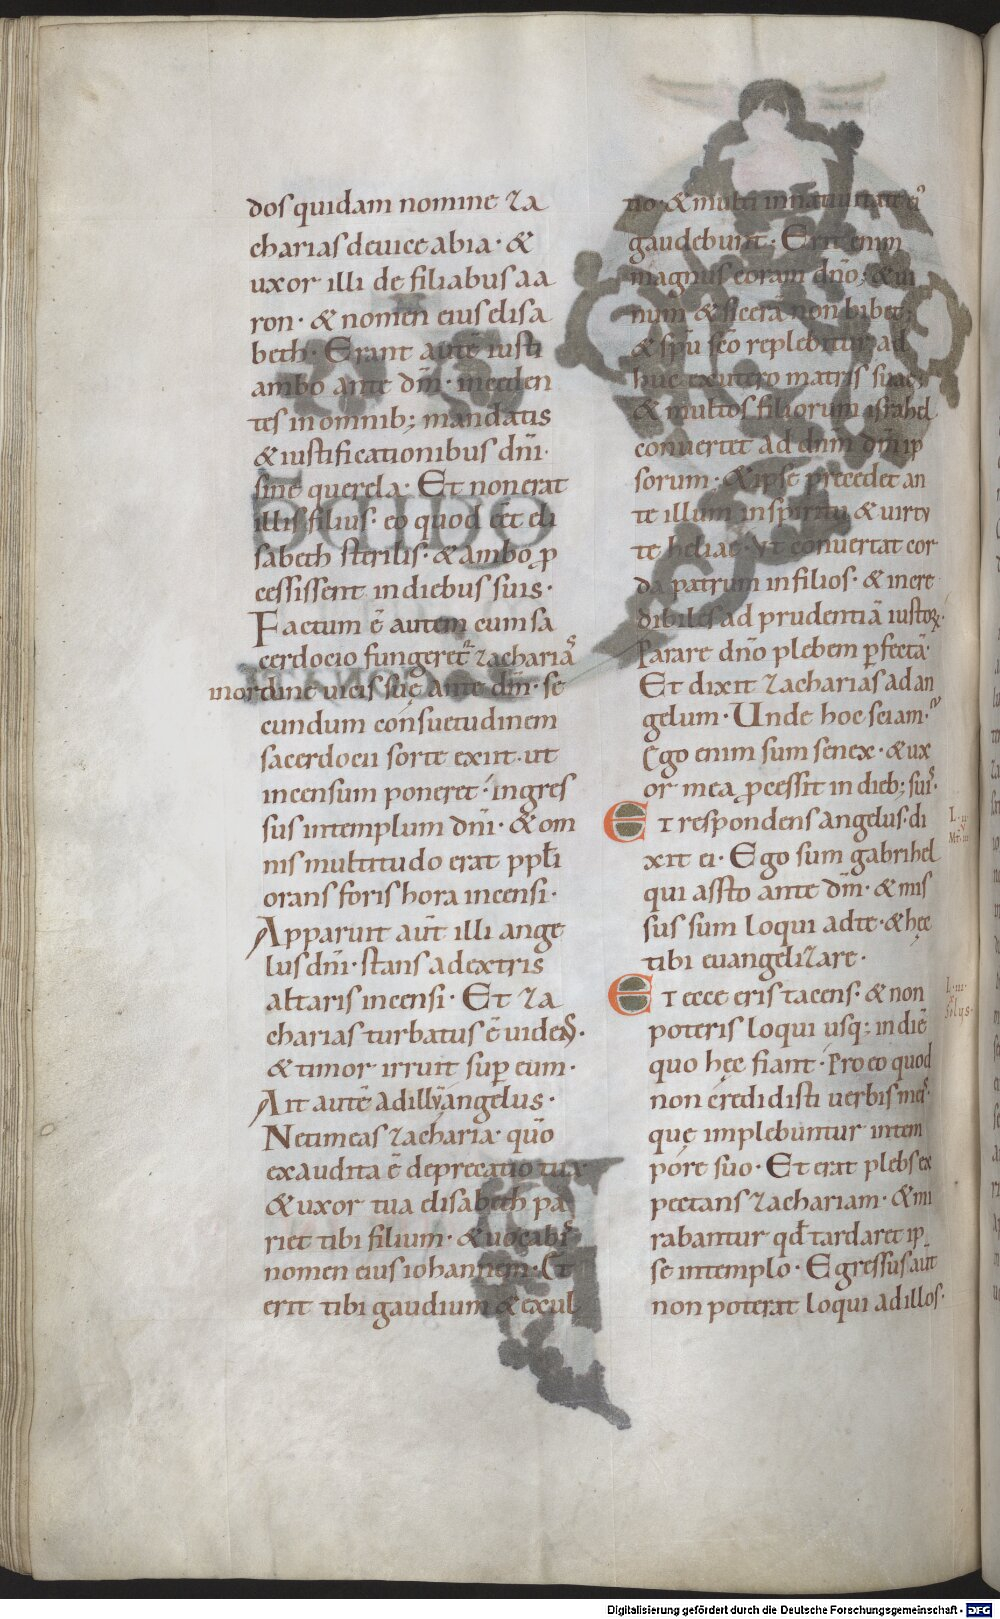 dos quidam nomine za
charias de uice abia· &
uxor illi de filiabus aa
ron· & nomen eius elisa
beth· Erant autē iusti
ambo ante dm̄· inceden
tes in omnib; mandatis
& iustificationibus dn̄i·
sine querela· Et non erat
illis filius· eo quod eēt eli
sabeth sterilis· & ambo p̄
cessissent in diebus suis·
Factum ē autem cum sa
cerdocio fungeret᷑ zacharias
in ordine uicis suę ante dm̄· se
cundum consuetudinem
sacerdocii sorte exiit· ut
incensum poneret· ingres
sus in templum dn̄i· & om
nis multitudo erat pp̄li
orans foris hora incensi·
Apparuit aūt illi ange
lus dn̄i· stans a dextris
altaris incensi· Et za
charias turbatus ē uidens·
& timor irruit sup̄ eum·
Ait autē ad illū angelus·
Ne timeas zacharia· quō
exaudita ē deprecatio tua·
& uxor tua elisabeth pa
riet tibi filium· & uocabis
nomen eius iohannem· Et
erit tibi gaudium & exul
tio· & multi in natiuitate ei᾽
gaudebunt· Erit enim
magnus coram dn̄o; & ui
num & sicerā non bibet;
& sp̄u sc̄o replebitur· ad
huc ex utero matris suae;
& multos filiorum israhel
conuertet ad dnm dm̄ ip
sorum· & ipse precedet an
te illum in spiritu & uirtu
te heliae· Vt conuertat cor
da patrum in filios· & incre
dibiles ad prudentiā iustoꝝ·
Parare dn̄o plebem p̄fectā·
Et dixit zacharias ad an
gelum· Unde hoc sciam·
Ego enim sum senex· & ux
or mea p̄cessit in dieb; suis·
Et respondens angelus· di
xit ei· Ego sum gabrihel
qui assto ante dm̄· & mis
sus sum loqui ad te· & hęc
tibi euangelizare·
Et ecce eris tacens· & non
poteris loqui usq; in diē
quo hęc fiant· Pro eo quod
non credidisti uerbis meis·
quę implebuntur in tem
pore suo· Et erat plebs ex
pectans zachariam· & mi
rabantur qd̄ tardaret ip
se in templo· Egressus aūt
non poterat loqui ad illos·
Digitalisierung gefördert durch die Deutsche Forschungsgemeinschaft - DFG